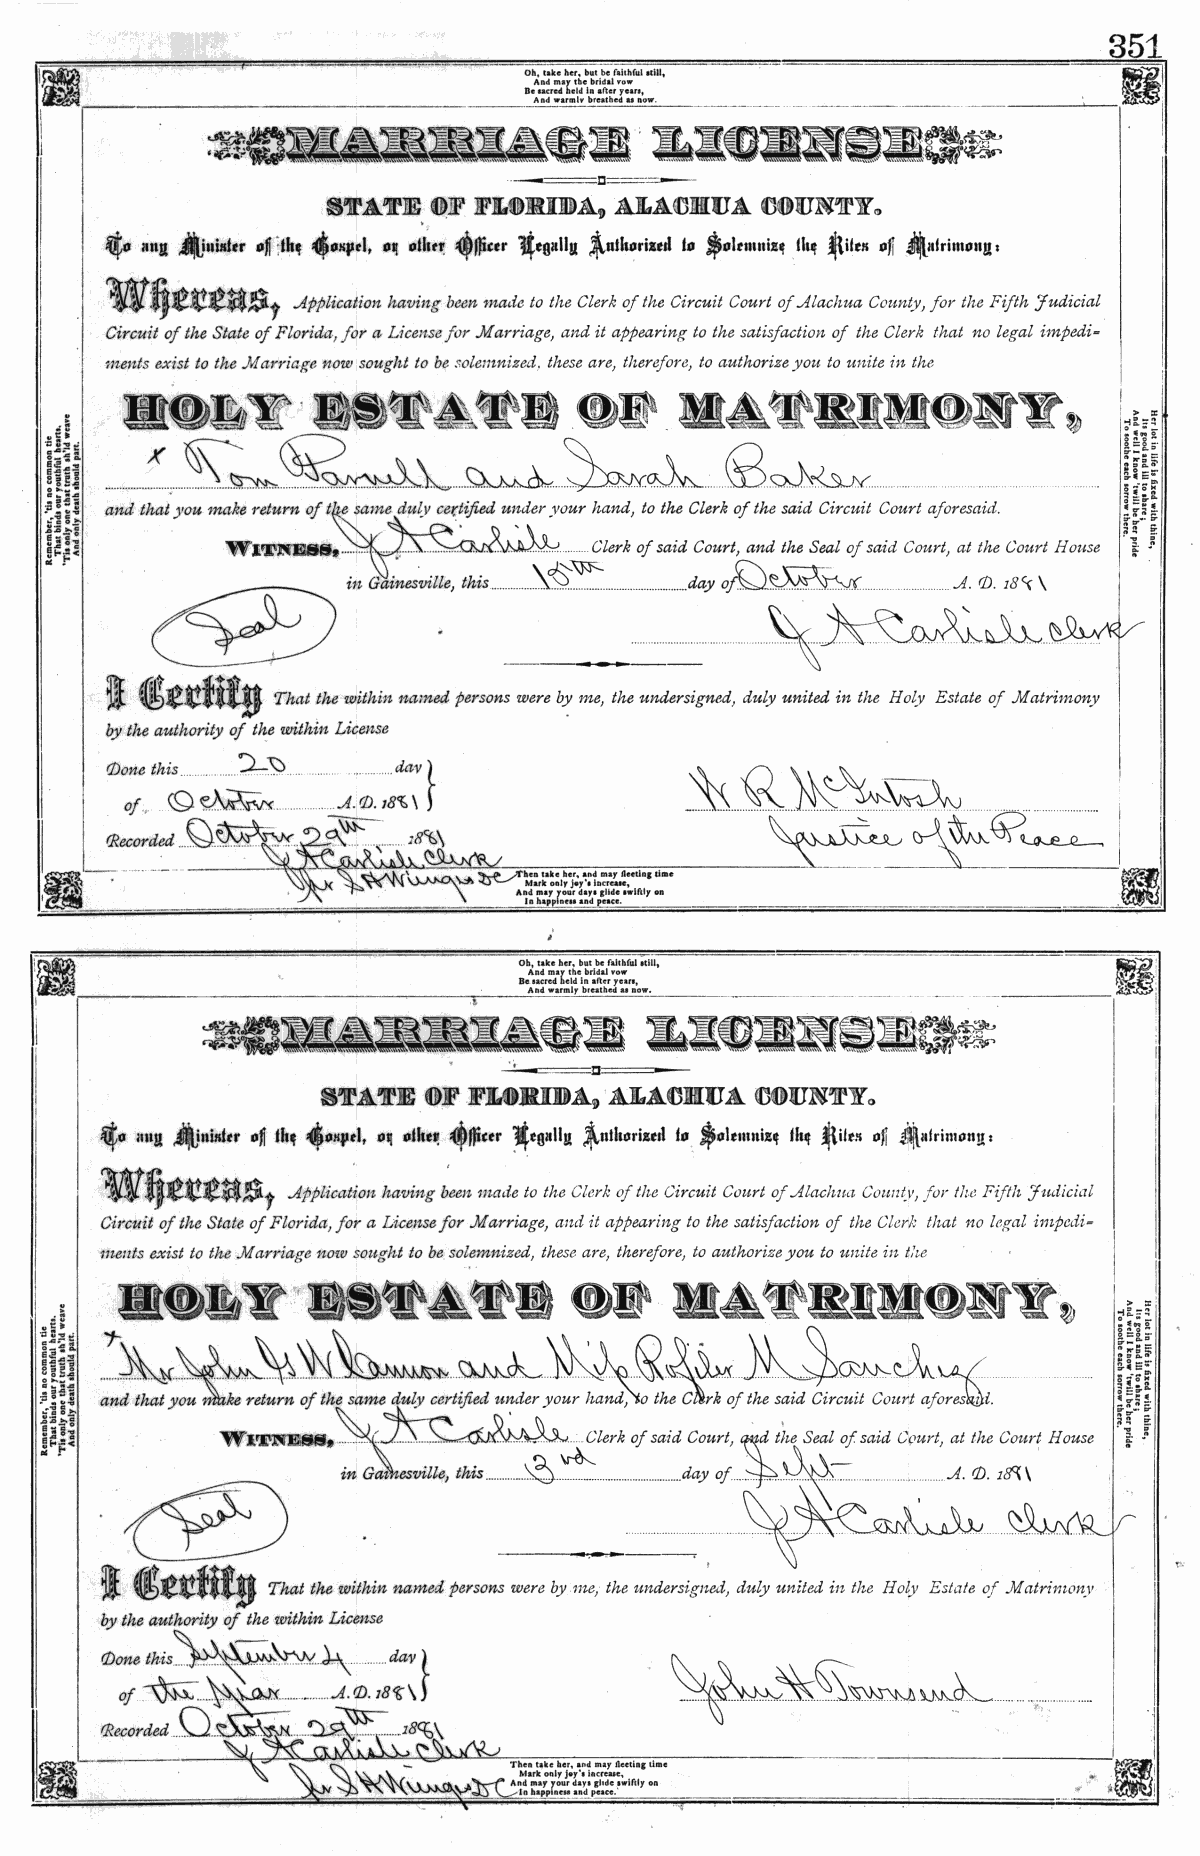 351
Oh, take her, but be faithful still,
And may the bridal vow
Be sacred held in after years,
And warmly breathed as now.
MARRIAGE LICENSE
STATE OF FLORIDA, ALACHUA COUNTY.
To any Minister of the Gospel, or other Officer Legally Authorized to Solemnize the Rites of Matrimony:
Whereas, Application having been made to the Clerk of the Circuit Court of Alachua County, for the Fifth Judicial
Circuit of the State of Florida, for a License for Marriage, and it appearing to the satisfaction of the Clerk that no legal impedi=
ments exist to the Marriage now sought to be solemnized, these are, therefore, to authorize you to unite in the
HOLY ESTATE OF MATRIMONY,
x Tom Parnell and Sarah Baker
and that you make return of the same duly certified under your hand, to the Clerk of the said Circuit Court aforesaid.
WITNESS, J A Carlisle Clerk of said Court, and the Seal of said Court, at the Court House
in Gainesville, this 15th day of October A. D. 1881
Seal
J A Carlisle Clerk
I Certify That the within named persons were by me, the undersigned, duly united in the Holy Estate of Matrimony
by the authority of the within License
Done this 20 day
of October A. D. 1881
W R McIntosh
Justice of the Peace
Recorded October 29th 1881
J A Carlisle Clerk
pr S H DC
Then take her, and may fleeting time
Mark only joy's increase,
And may your days glide swiftly on
In happiness and peace.
Remember, 'tis no common tie
That binds our youthful hearts,
'Tis only one that truth sh'ld weave
And only death should part.
Her lot in life is fixed with thine,
Its good and ill to share;
And well I know 'twill be her pride
To soothe each sorrow there.
Oh, take her, but be faithful still,
And may the bridal vow
Be sacred held in after years,
And warmly breathed as now.
MARRIAGE LICENSE
STATE OF FLORIDA, ALACHUA COUNTY.
To any Minister of the Gospel, or other Officer Legally Authorized to Solemnize the Rites of Matrimony:
Whereas, Application having been made to the Clerk of the Circuit Court of Alachua County, for the Fifth Judicial
Circuit of the State of Florida, for a License for Marriage, and it appearing to the satisfaction of the Clerk that no legal impedi=
ments exist to the Marriage now sought to be solemnized, these are, therefore, to authorize you to unite in the
HOLY ESTATE OF MATRIMONY,
x Mr John G W Cannon and Miss M Sanchez
and that you make return of the same duly certified under your hand, to the Clerk of the said Circuit Court aforesaid.
WITNESS, J A Carlisle Clerk of said Court, and the Seal of said Court, at the Court House
in Gainesville, this 3rd day of Sept A. D. 1881
Seal
J A Carlisle Clerk
I Certify That the within named persons were by me, the undersigned, duly united in the Holy Estate of Matrimony
by the authority of the within License
Done this September 4 day
of the year A. D. 1881
John H Townsend
Recorded October 29th 1881
J A Carlisle Clerk
pr S H DC
Then take her, and may fleeting time
Mark only joy's increase,
And may your days glide swiftly on
In happiness and peace.
Remember, 'tis no common tie
That binds our youthful hearts,
'Tis only one that truth sh'ld weave
And only death should part.
Her lot in life is fixed with thine,
Its good and ill to share;
And well I know 'twill be her pride
To soothe each sorrow there.